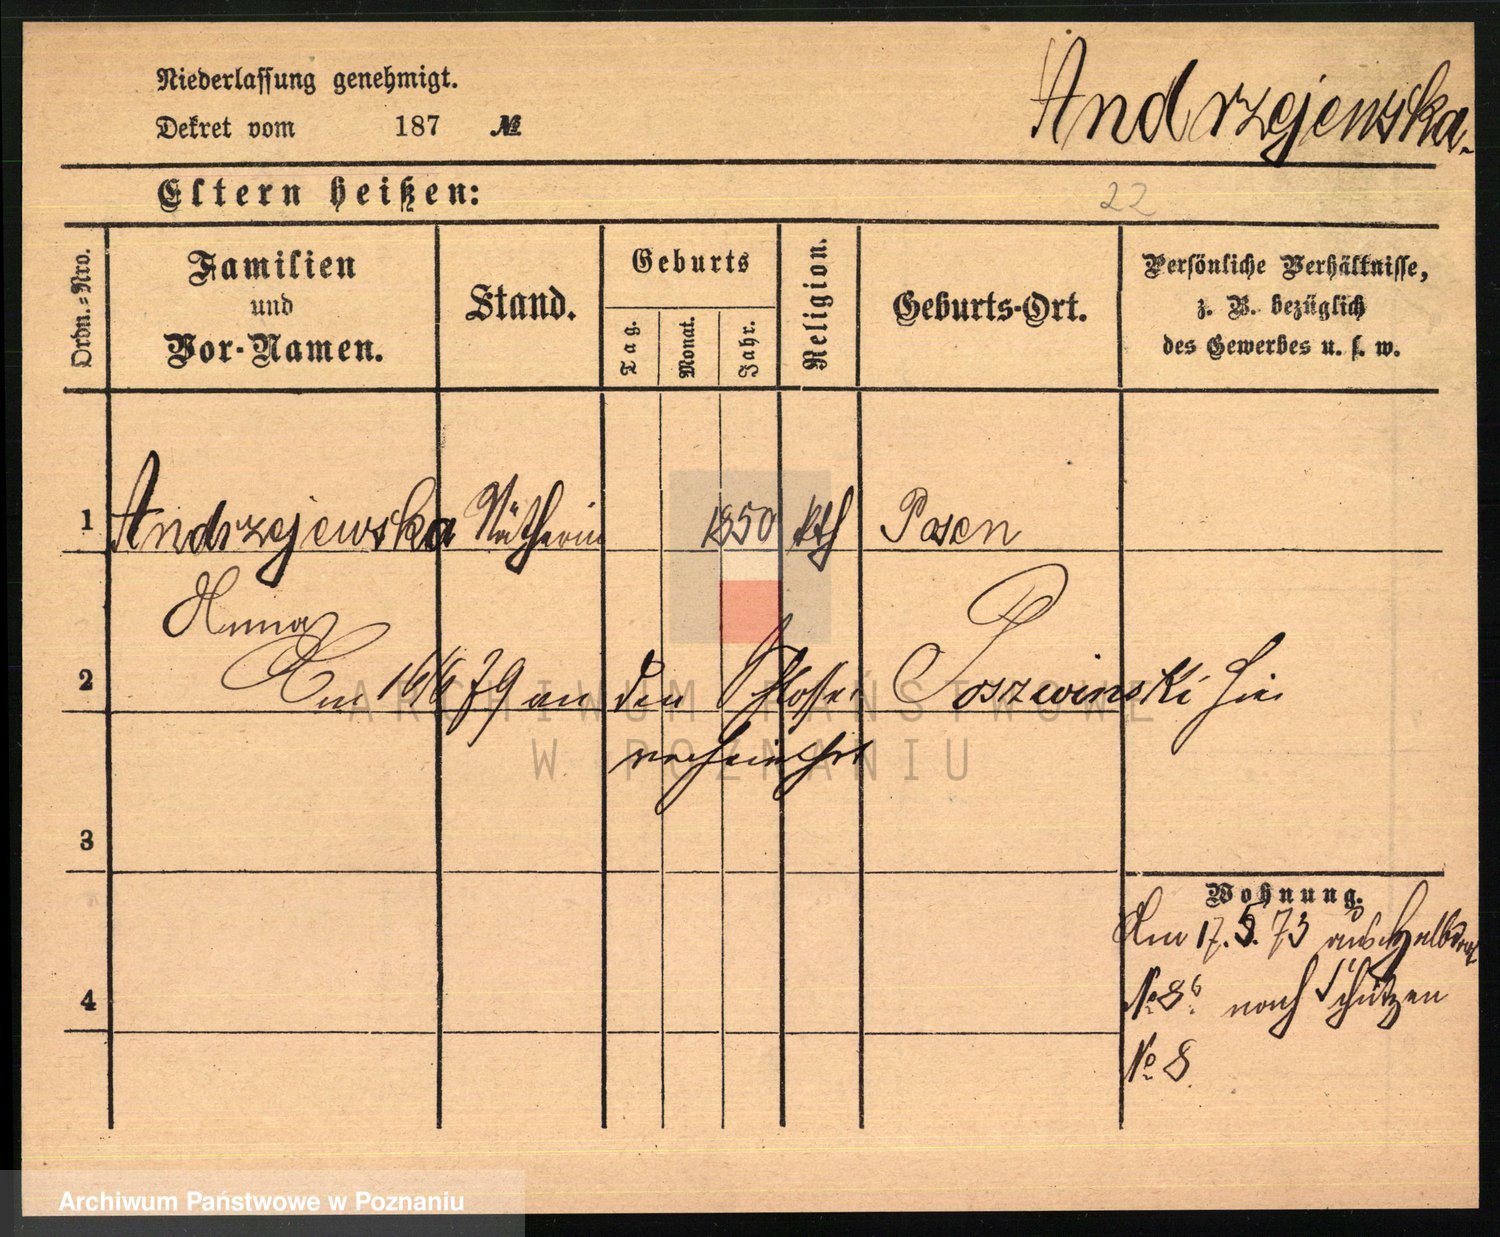 Niederlassung genehmigt.
Dekret vom 187 №
Andrzejewska.
Eltern heißen:
22
Ordn.=Nro.
Familien
und
Vor-Namen.
Stand.
Geburts
Tag.
Monat.
Jahr.
Religion.
Geburts-Ort.
Persönliche Verhältnisse,
z. B. bezüglich
des Gewerbes u. s. w.
1 Andrzejewska Nätherin 1850 kth Posen
Anna
2 Am 16/6 79 an den Schlosser Poszwinski hier
verheirathet
3
Wohnung.
Am 17.5.73 aus Halbdorf
No 8b nach Schützen
4
No 8
ARCHIWUM PAŃSTWOWE
W POZNANIU
Archiwum Państwowe w Poznaniu